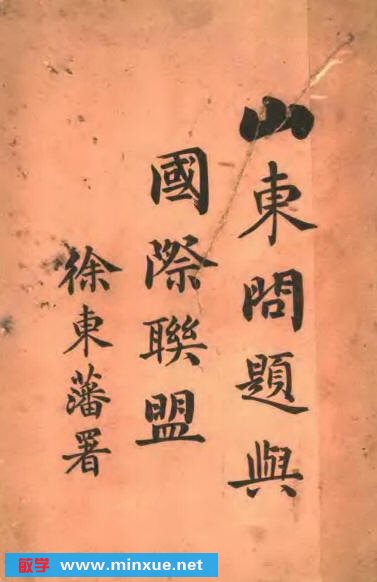 山東問題與
國際聯盟
徐東藩署
敏学 www.minxue.net